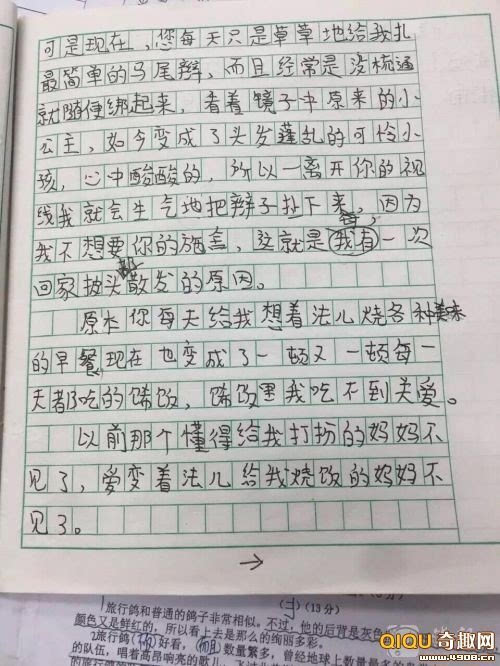 可是现在，您每天只是草草地给我扎
最简单的马尾辫，而且经常是没梳通
就随便绑起来，看着镜子中原来的小
公主，如今变成了头发蓬乱的可怜小
孩，心中酸酸的，所以一离开你的视
线我就会生气地把辫子扯下来，因为
我不想要你的施舍，这就是我有一次
回家披头散发的原因。
原本你每天给我想着法儿烧各种美味
的早餐现在也变成了一顿又一顿每一
天都吃的馊饭，馊饭里我吃不到关爱。
以前那个懂得给我打扮的妈妈不
见了，爱变着法儿给我烧饭的妈妈不
见了。
→
(二)(13分)
1旅行鸽和普通的鸽子非常相似。不过，他的后背是灰色
颜色又是鲜红的，所以看上去是那么的绚丽多彩。
2旅行鸽 好看， 数量繁多，曾经地球上数量最多
的队伍，唱着高昂响亮的歌儿
QIQU奇趣网
www.4908.cn